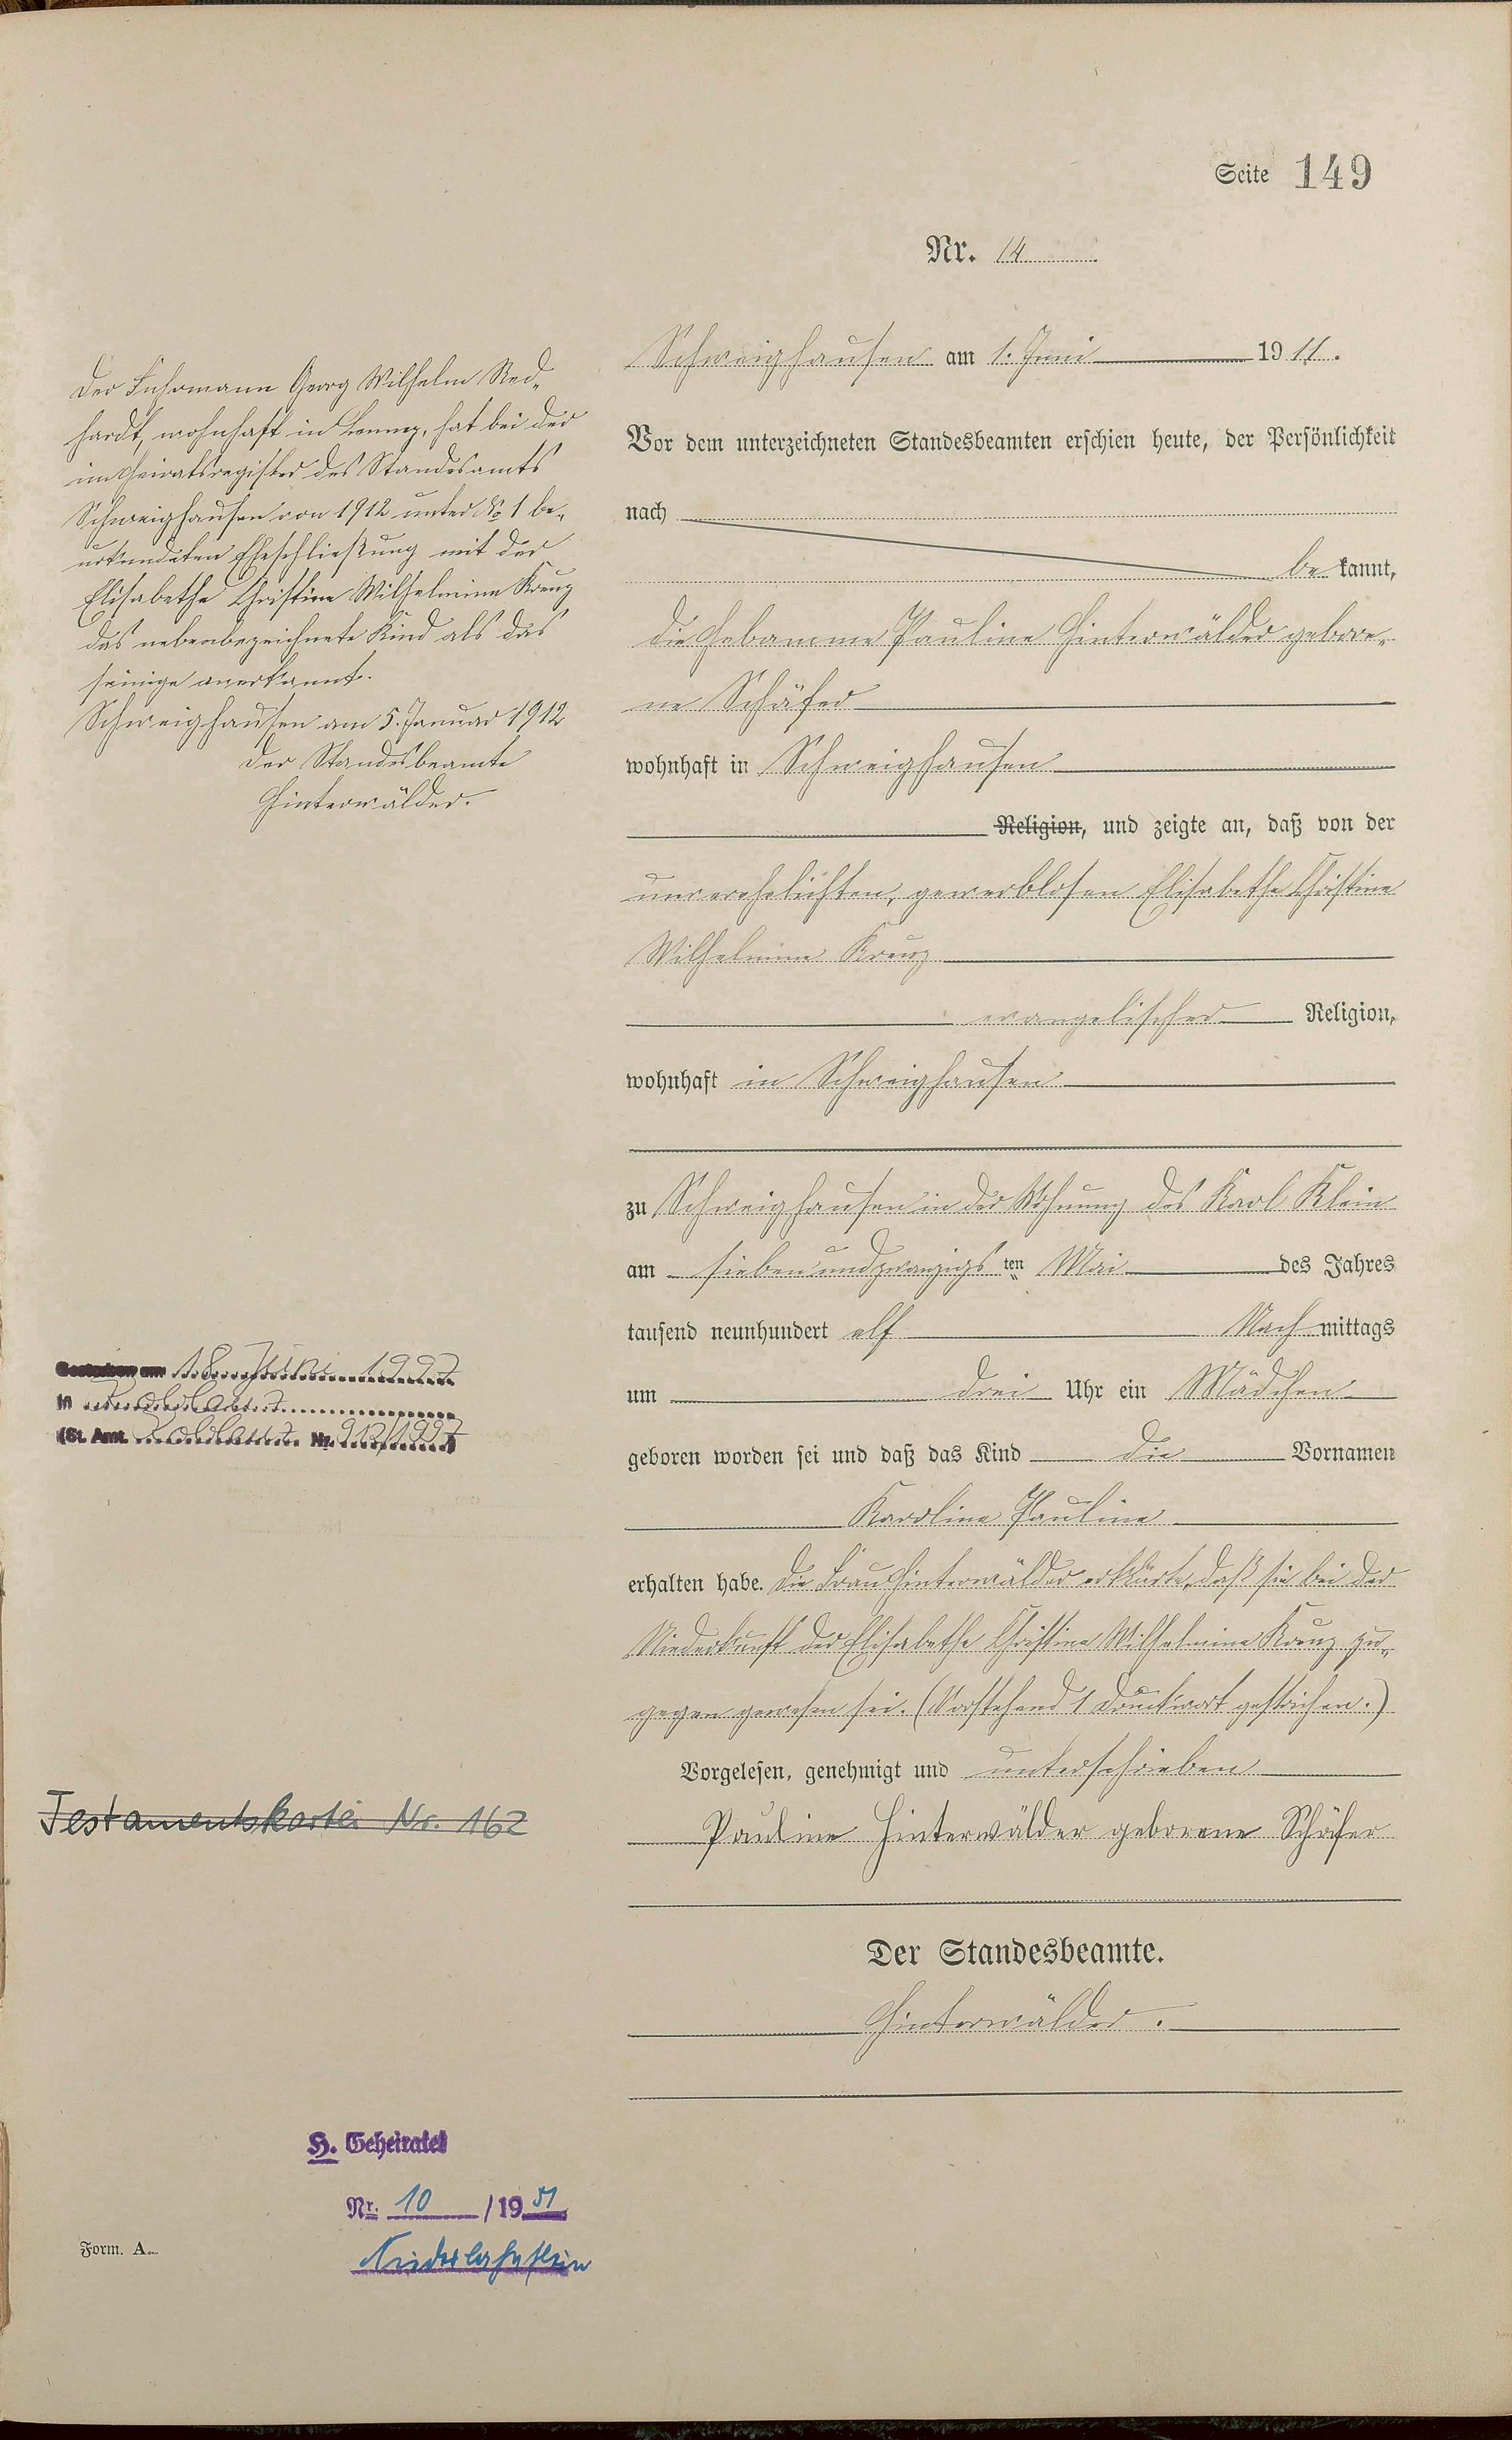 Seite 149
Nr. 14
Schweighausen am 1. Juni 1911.
Vor dem unterzeichneten Standesbeamten erschien heute, der Persönlichkeit
nach
be kannt,
die Hebamme Pauline Hinterwälder gebore-
ne Schäfer
wohnhaft in Schweighausen
Religion, und zeigte an, daß von der
unverehelichten, gewerblosen Elisabethe Christine
Wilhelmine Kreuz
evangelischer Religion,
wohnhaft in Schweighausen
zu Schweighausen in der Wohnung des Karl Klein
am siebenundzwanzigs ten Mai des Jahres
tausend neunhundert elf Nach mittags
um drei Uhr ein Mädchen
geboren worden sei und daß das Kind die Vornamen
Karoline Pauline
erhalten habe. Die Frau Hinterwälder erklärte, daß sie bei der
Niederkunft der Elisabethe Christine Wilhelmine Kreuz zu-
gegen gewesen sei. (Vorstehend 1 Druckwort gestrichen.)
Vorgelesen, genehmigt und unterschrieben
Pauline Hinterwälder geborene Schäfer
Der Standesbeamte.
Hinterwälder.
Der Fuhrmann Georg Wilhelm Red-
hardt, wohnhaft in Lennep, hat bei der
im Heiratsregister des Standesamts
Schweighausen von 1912 unter No 1 be-
urkundeten Eheschließung mit der
Elisabethe Christine Wilhelmine Kreuz
das nebenbezeichnete Kind als das
seinige anerkannt.
Schweighausen am 5. Januar 1912
Der Standesbeamte
Hinterwälder.
Gestorben am 18. Juni 1997
in Koblenz
(St. Amt. Koblenz Nr. 912/1997)
Testamentskartei Nr. 162
H. Geheiratet
Nr. 10 /19 51
Niederlahnstein
Form. A.